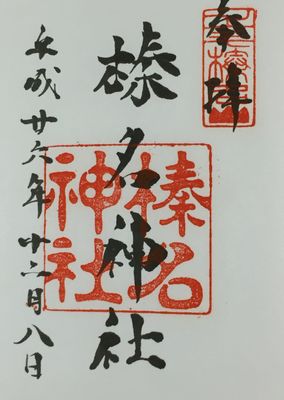 奉拝
榛名神社
榛名
神社
平成廿六年十二月八日